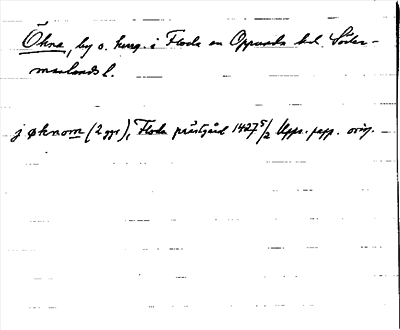 Ökna, by o. herrg. i Floda sn Oppunda hd. Söder-
manlands l.
j øknom (2 ggr), Floda prästgård 1427 5/2 Upps. papp. orig.